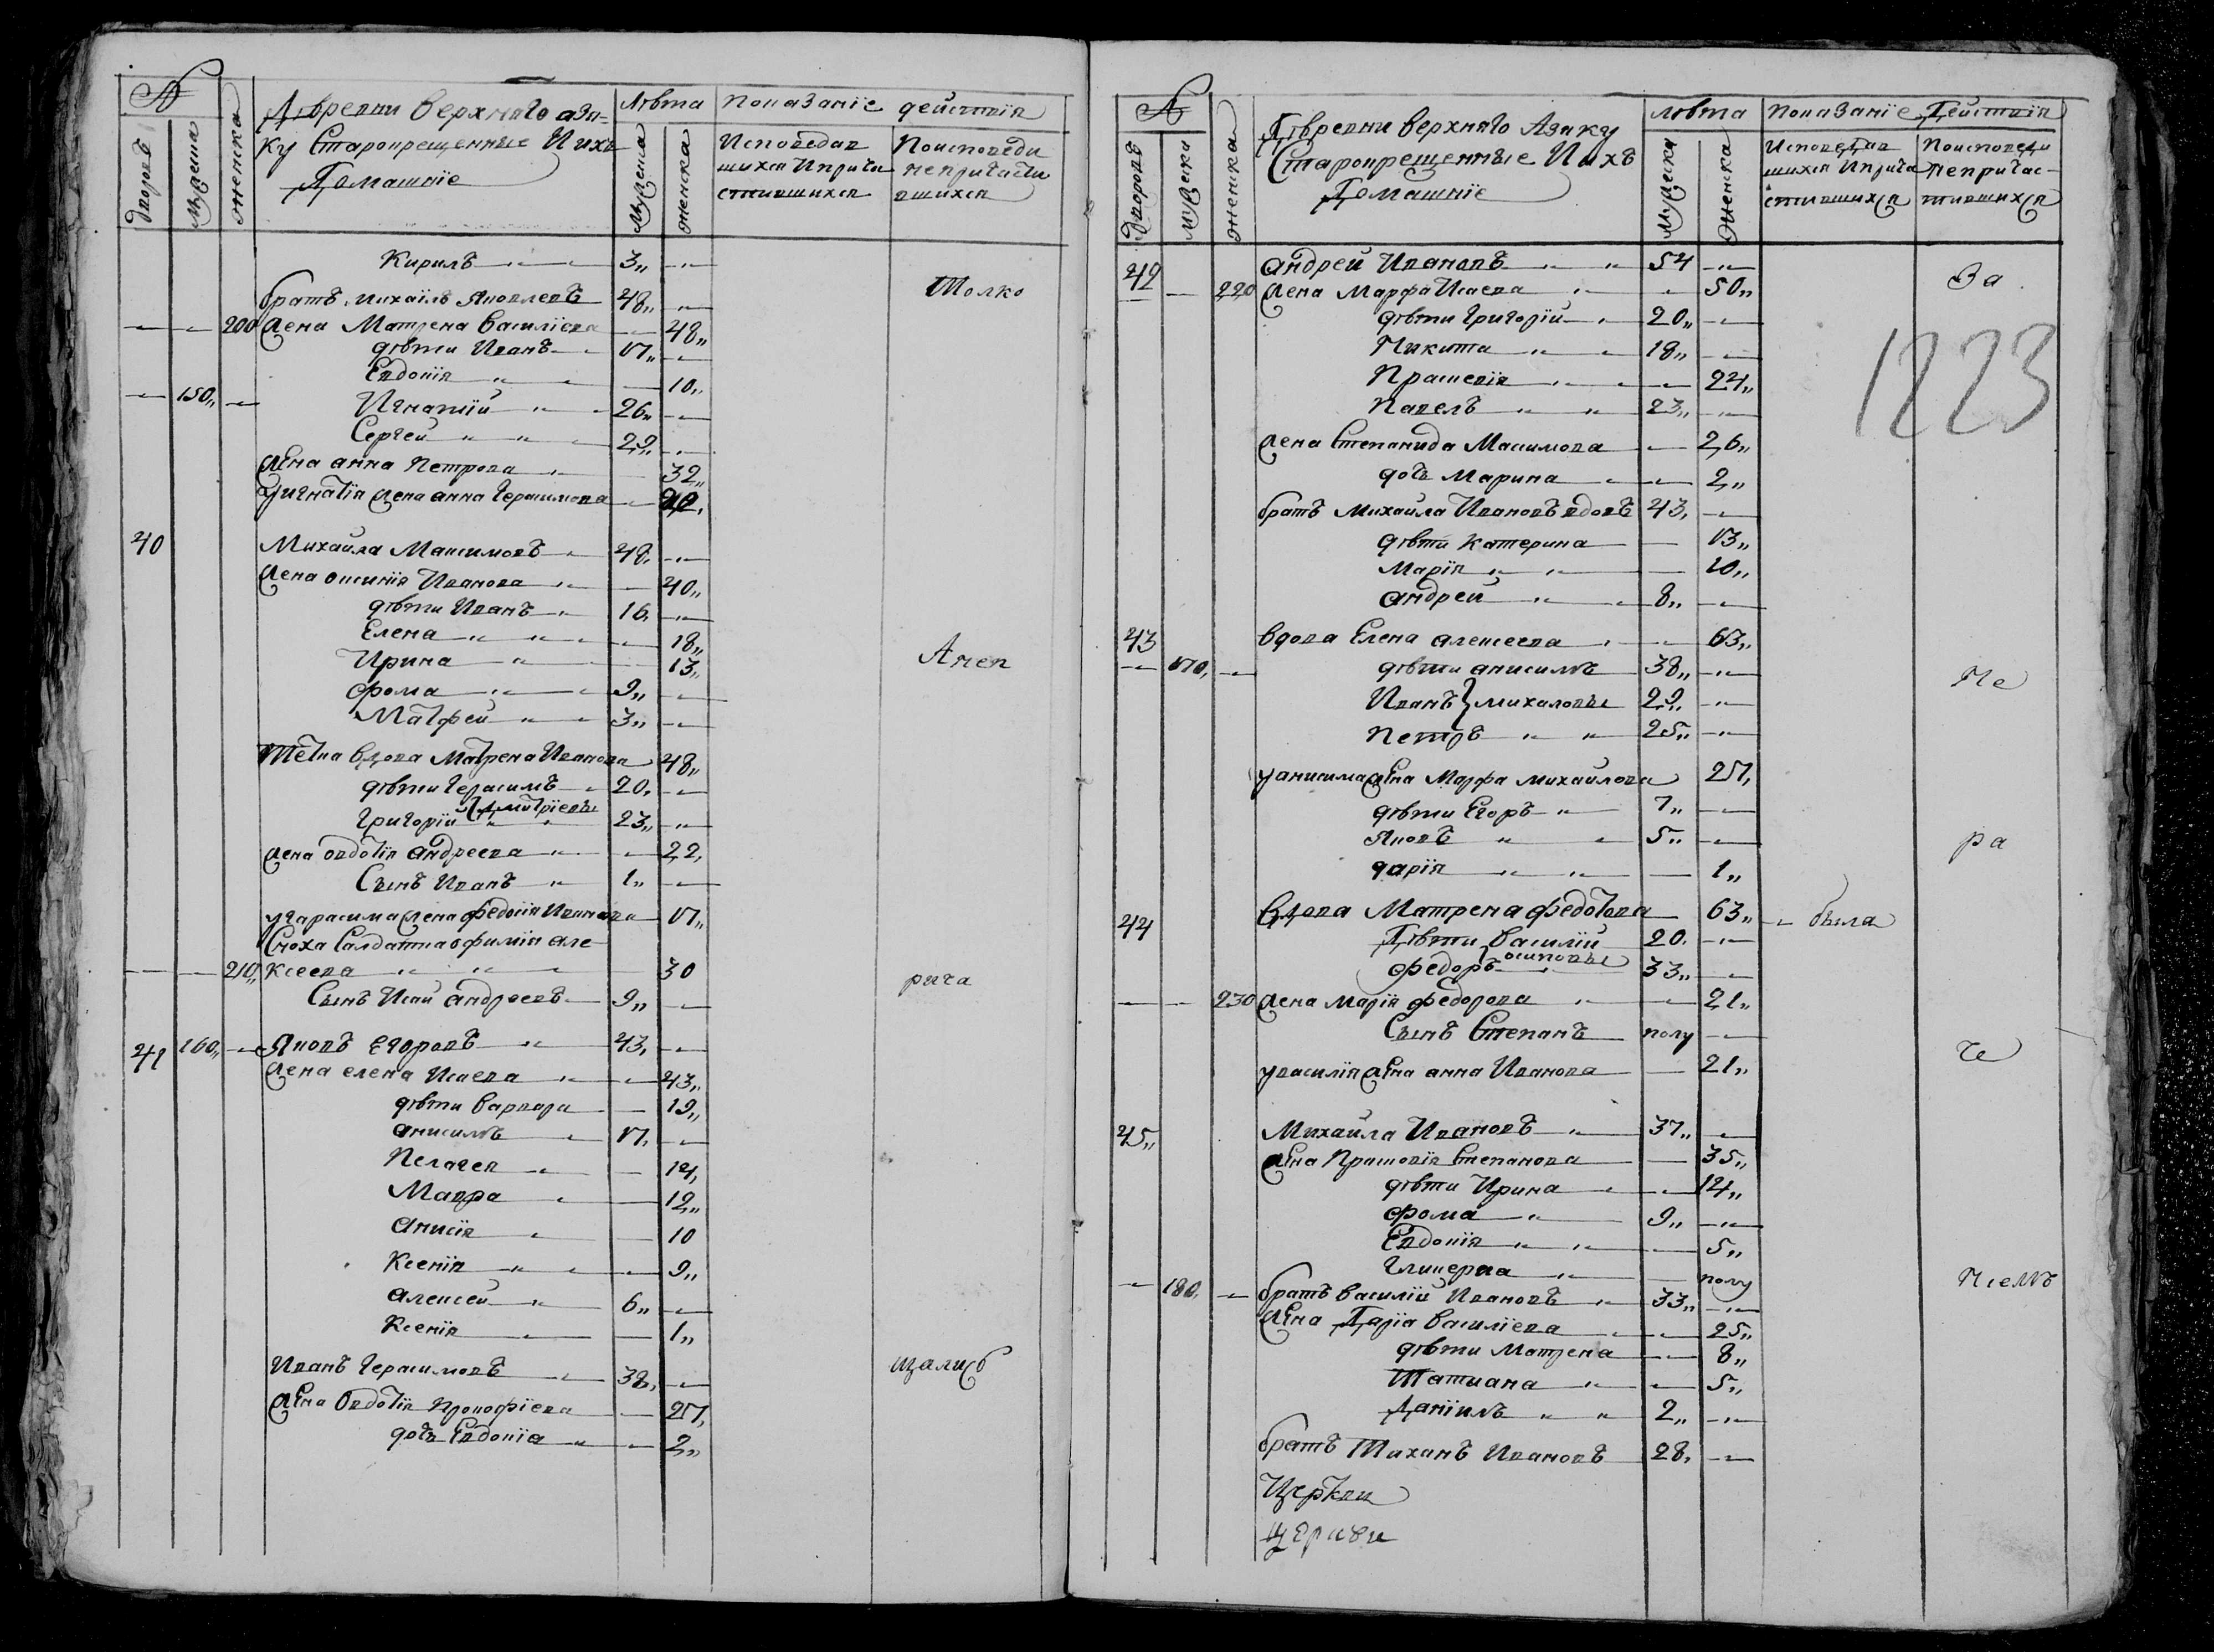 №
Дѣревни верхняго азя-
ку Старокрещенные И ихъ
Домашнїе
Лѣта
Показанїе действїя
дворовъ
мужеска
женска
мужеска
женска
Исповедав
шихся Иприча
стившихся
Поисповеди
непричасти
вшихся
Кирилъ 3„
братъ Михайлъ Яковлевъ 48„
Толко
200 жена Матрена Василїева 48„
дѣти Иванъ 17„
Евдокїя 10„
150„ Игнатїй 26„
Сергей 22„
жена анна Петрова 32„
уигнатїя жена анна Герасимова
40 Михайла Максимовъ 48„
жена оксинїя Иванова 40„
дѣти Иванъ 16„
Елена 18„
Ирина 13„
Анеп
фома 9„
Матфей 3„
тетка вдова Матрена Иванова 48„
дѣти Герасимъ 20„
Григорїй Дмитрїевы 23„
жена овдотїя андреева 22„
Сынъ Иванъ 1„
угарасима жена федосїя Иванова 17„
Сноха Салдатка офимїя але
210„ ксеева 30
рича
Сынъ Исай андреевъ 9„
41 160„ Яковъ Егоровъ 43„
жена елена Исаева 43„
дѣти варвара 19„
анисимъ 17„
Пелагея 14„
Мавра 12„
анисїя 10
Ксенїя 9„
алексей 6„
Ксенїя 1„
Иванъ Герасимовъ 38„
щались
жена Овдотїя Прокофїева 27„
дочь Евдокїя 2„
№
Дѣревни верхняго Азяку
Старокрещенные И ихъ
Домашнїе
лѣта
Показанїе Действїя
дворовъ
мужеска
женска
мужеска
женска
Исповедав
шихся Иприча
стившихся
Поисповеди
непричас-
тившихся
42 андрей Ивановъ 54
За
220 жена Марфа Исаева 50„
дѣти Григорїй 20„
Никита 18„
1223
Прасковїя 24„
Павелъ 23„
жена Степанида Максимова 26„
дочь Марина 2„
братъ Михайла Ивановъ вдовъ 43„
дѣти Катерина 13„
Марїя 10„
андрей 8„
43 вдова Елена алексеева 63„
170„ дѣти анисимъ 38„
Не
Иванъ михаловы 29„
Петръ 25„
уанисима жена Марфа михайлова 27„
дѣти Егоръ 7„
Яковъ 5„
ра
дарїя 1„
44 Вдова Матрена федотова 63„ была
Дѣти василїй 20„
федоръ осиповы 33„
230 жена Марїя федорова 21„
Сынъ Степанъ полу
че
увасилїя жена анна Иванова 21„
45„ Михайла Ивановъ 37„
жена Прасковїя Степанова 35„
дѣти Ирина 14„
фома 9„
Евдокїя 5„
Гликерия полу
нїемъ
180„ братъ василїй Ивановъ 33„
жена Дарїа василїева 25„
дѣти Матрена 8„
Татиана 5„
Данїилъ 2„
братъ Тиханъ Ивановъ 28„
Церкви
церкви